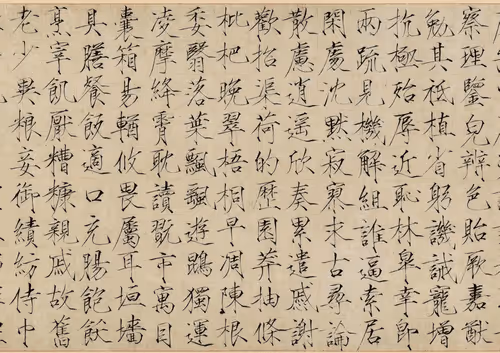 察理鑒皃辯色貽厥嘉猷
勉其祗植省躬譏誡寵增
抗極殆辱近恥林皋幸即
兩疏見機解組誰逼索居
閑處沈默寂寥求古尋論
散慮逍遙欣奏累遣慼謝
歡招渠荷的歷園莽抽條
枇杷晚翠梧桐早凋陳根
委翳落葉飄颻遊鵾獨運
凌摩絳霄耽讀翫市寓目
囊箱易輶攸畏屬耳垣墻
具膳餐飯適口充腸飽飫
烹宰飢厭糟糠親戚故舊
老少異糧妾御績紡侍巾